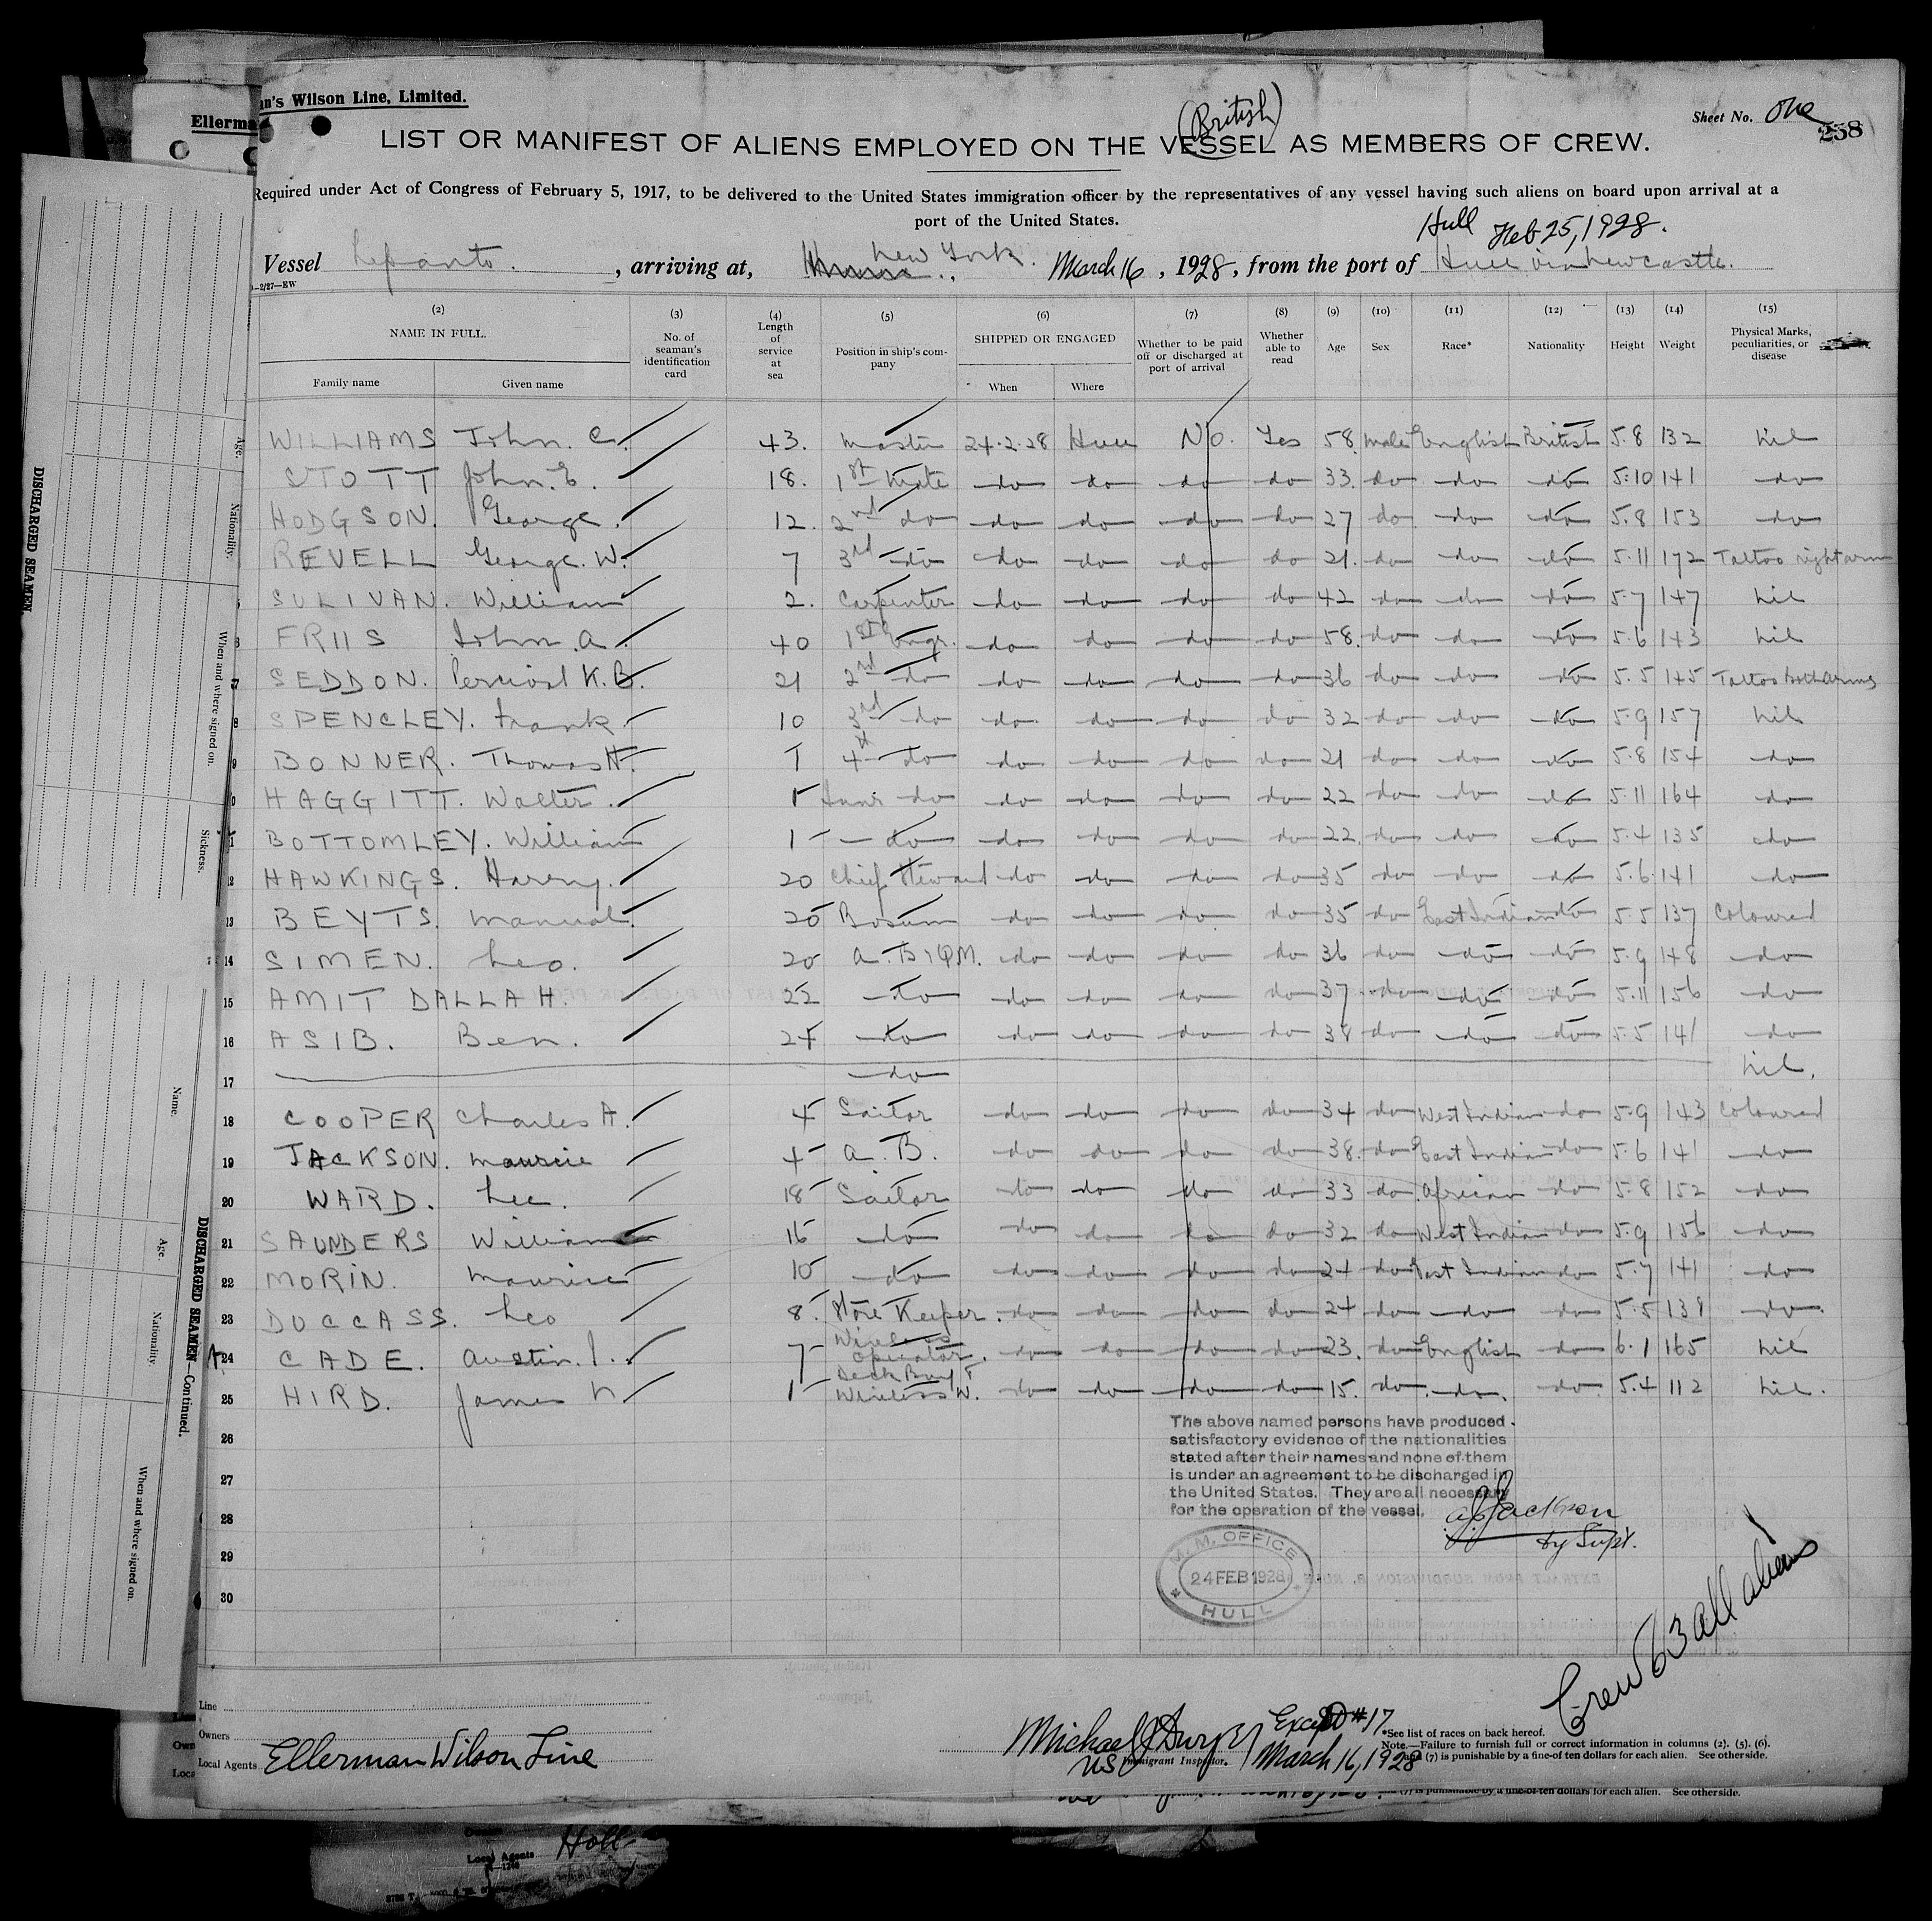 n's Wilson Line, Limited.
Ellerma
Sheet No. One
258
(British)
LIST OR MANIFEST OF ALIENS EMPLOYED ON THE VESSEL AS MEMBERS OF CREW.
Required under Act of Congress of February 5, 1917, to be delivered to the United States immigration officer by the representatives of any vessel having such aliens on board upon arrival at a
port of the United States.
Hull Feb 25, 1928.
Vessel Lepanto. , arriving at, New York. March 16 , 1928, from the port of Hull via Newcastle.
—2/27—EW
(2) (3) (4) (5) (6) (7) (8) (9) (10) (11) (12) (13) (14) (15)
NAME IN FULL. No. of seaman's identification card Length of service at sea Position in ship's company SHIPPED OR ENGAGED Whether to be paid off or discharged at port of arrival Whether able to read Age Sex Race* Nationality Height Weight Physical Marks, peculiarities, or disease
Family name Given name When Where
WILLIAMS John. C. 43. Master 24.2.28 Hull No. Yes 58. male English British 5.8 132 Nil
STOTT John. E. 18. 1st Mate do do do do 33. do do do 5.10 141 do
HODGSON. George. 12. 2nd do do do do do 27 do do do 5.8 153 do
REVELL George. W. 7 3rd do do do do do 21. do do do 5.11 172 Tattoo right arm
SULIVAN. William 2. Carpenter do do do do 42 do do do 5.7 147 Nil
6 FRIIS John. A. 40 1st Engr. do do do do 58. do do do 5.6 143 Nil
7 SEDDON. Percival K.B. 21 2nd do do do do do 36 do do do 5.5 145 Tattoo both arms
8 SPENCLEY. Frank. 10 3rd do do do do do 32 do do do 5.9 157 Nil
9 BONNER. Thomas H. 1 4th do do do do do 21 do do do 5.8 154 do
HAGGITT. Walter. 1 Junr do do do do do 22 do do do 5.11 164 do
11 BOTTOMLEY. William 1 do do do do do 22. do do do 5.4 135 do
12 HAWKINGS. Harry. 20 Chief Steward do do do do 35 do do do 5.6 141 do
13 BEYTS. Manual. 20 Bosum do do do do 35 do East Indian do 5.5 137 Coloured
14 SIMEN. Leo. 20 A.B & QM. do do do do 36 do do do 5.9 148 do
15 AMIT DALLAH. 22 do do do do do 37 do do do 5.11 156 do
16 ASIB. Ben. 24 do do do do do 38 do do do 5.5 141 do
17 do Nil.
18 COOPER Charles A. 4 Sailor do do do do 34 do West Indian do 5.9 143 Coloured
19 JACKSON. Maurice 4 A.B. do do do do 38. do East Indian do 5.6 141 do
20 WARD. Lee. 18 Sailor do do do do 33 do African do 5.8 152 do
21 SAUNDERS William 16 do do do do do 32 do West Indian do 5.9 156 do
22 MORIN. Maurice 10 do do do do do 24 do East Indian do 5.7 141 do
23 DUCCASS. Leo 8. Store Keeper. do do do do 24 do do do 5.5 139 do.
24 CADE. Austin. J. 7 Wireless Operator. do do do do 23. do English do 6.1 165 Nil
25 HIRD. James N 1 Deck Boy & Wireless W. do do do do 15. do do. do. 5.4 112 Nil.
26
27
28
29
30
The above named persons have produced
satisfactory evidence of the nationalities
stated after their names and none of them
is under an agreement to be discharged in
the United States. They are all necessary
for the operation of the vessel.
Jackson
Dy Supt.
M.M. OFFICE
24 FEB 1928
HULL
Crew 63 all aliens
Line
Owners
Local Agents Ellerman Wilson Line
Michael J Dwyer
US Immigrant Inspector.
Except #17
March 16, 1928
*See list of races on back hereof.
Note.—Failure to furnish full or correct information in columns (2), (5), (6).
and (7) is punishable by a fine of ten dollars for each alien. See other side.
(7) is punishable by a fine of ten dollars for each alien. See other side.
Local Agents Holl
DISCHARGED SEAMEN
Age.
Nationality.
When and where signed on.
Sickness.
DISCHARGED SEAMEN—Continued.
Name.
Age.
Nationality.
When and where signed on.